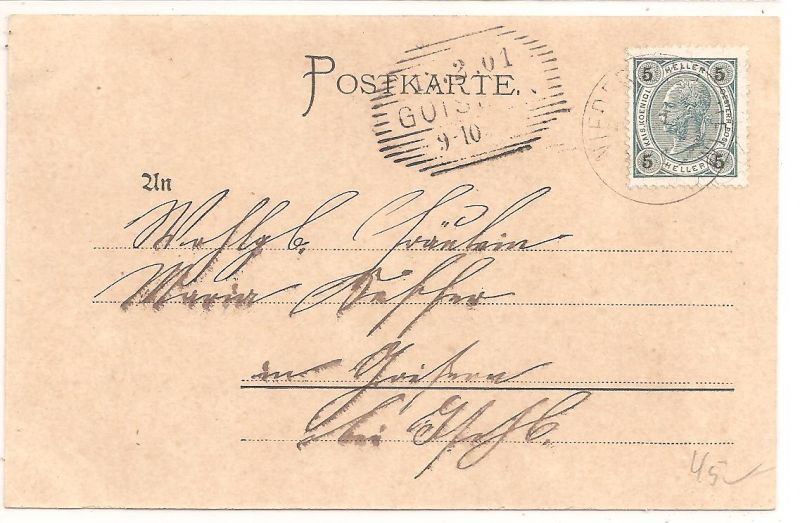 POSTKARTE.
3.01
GOIS
9-10
NIEDER
5 HELLER 5
KAIS. KOENIGL. OESTERR. POST
5 HELLER 5
An
Wohlgb. Fräulein
Maria
in Goisern
bei Ischl.
45